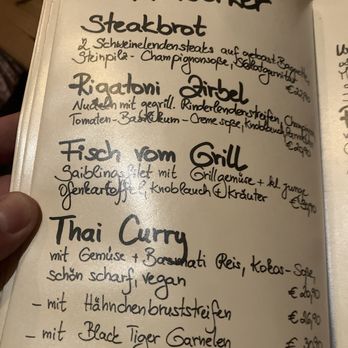 Steakbrot
2 Schweinelendensteaks auf getoast. Baguette
Steinpilz-Champignonsoße, Salatgarnitur
Rigatoni Zirbel
Nudeln mit gegrill. Rinderlendenstreifen, Champignons
Tomaten-Basilikum-Cremesoße, Knoblauch,
Fisch vom Grill
Saiblingsfilet mit Grillgemüse + kl. junge
Ofenkartoffeln, Knoblauch + Kräuter
Thai Curry
mit Gemüse + Basmati Reis, Kokos-Soße,
schön scharf, vegan € 20,90
- mit Hähnchenbruststreifen
- mit Black Tiger Garnelen